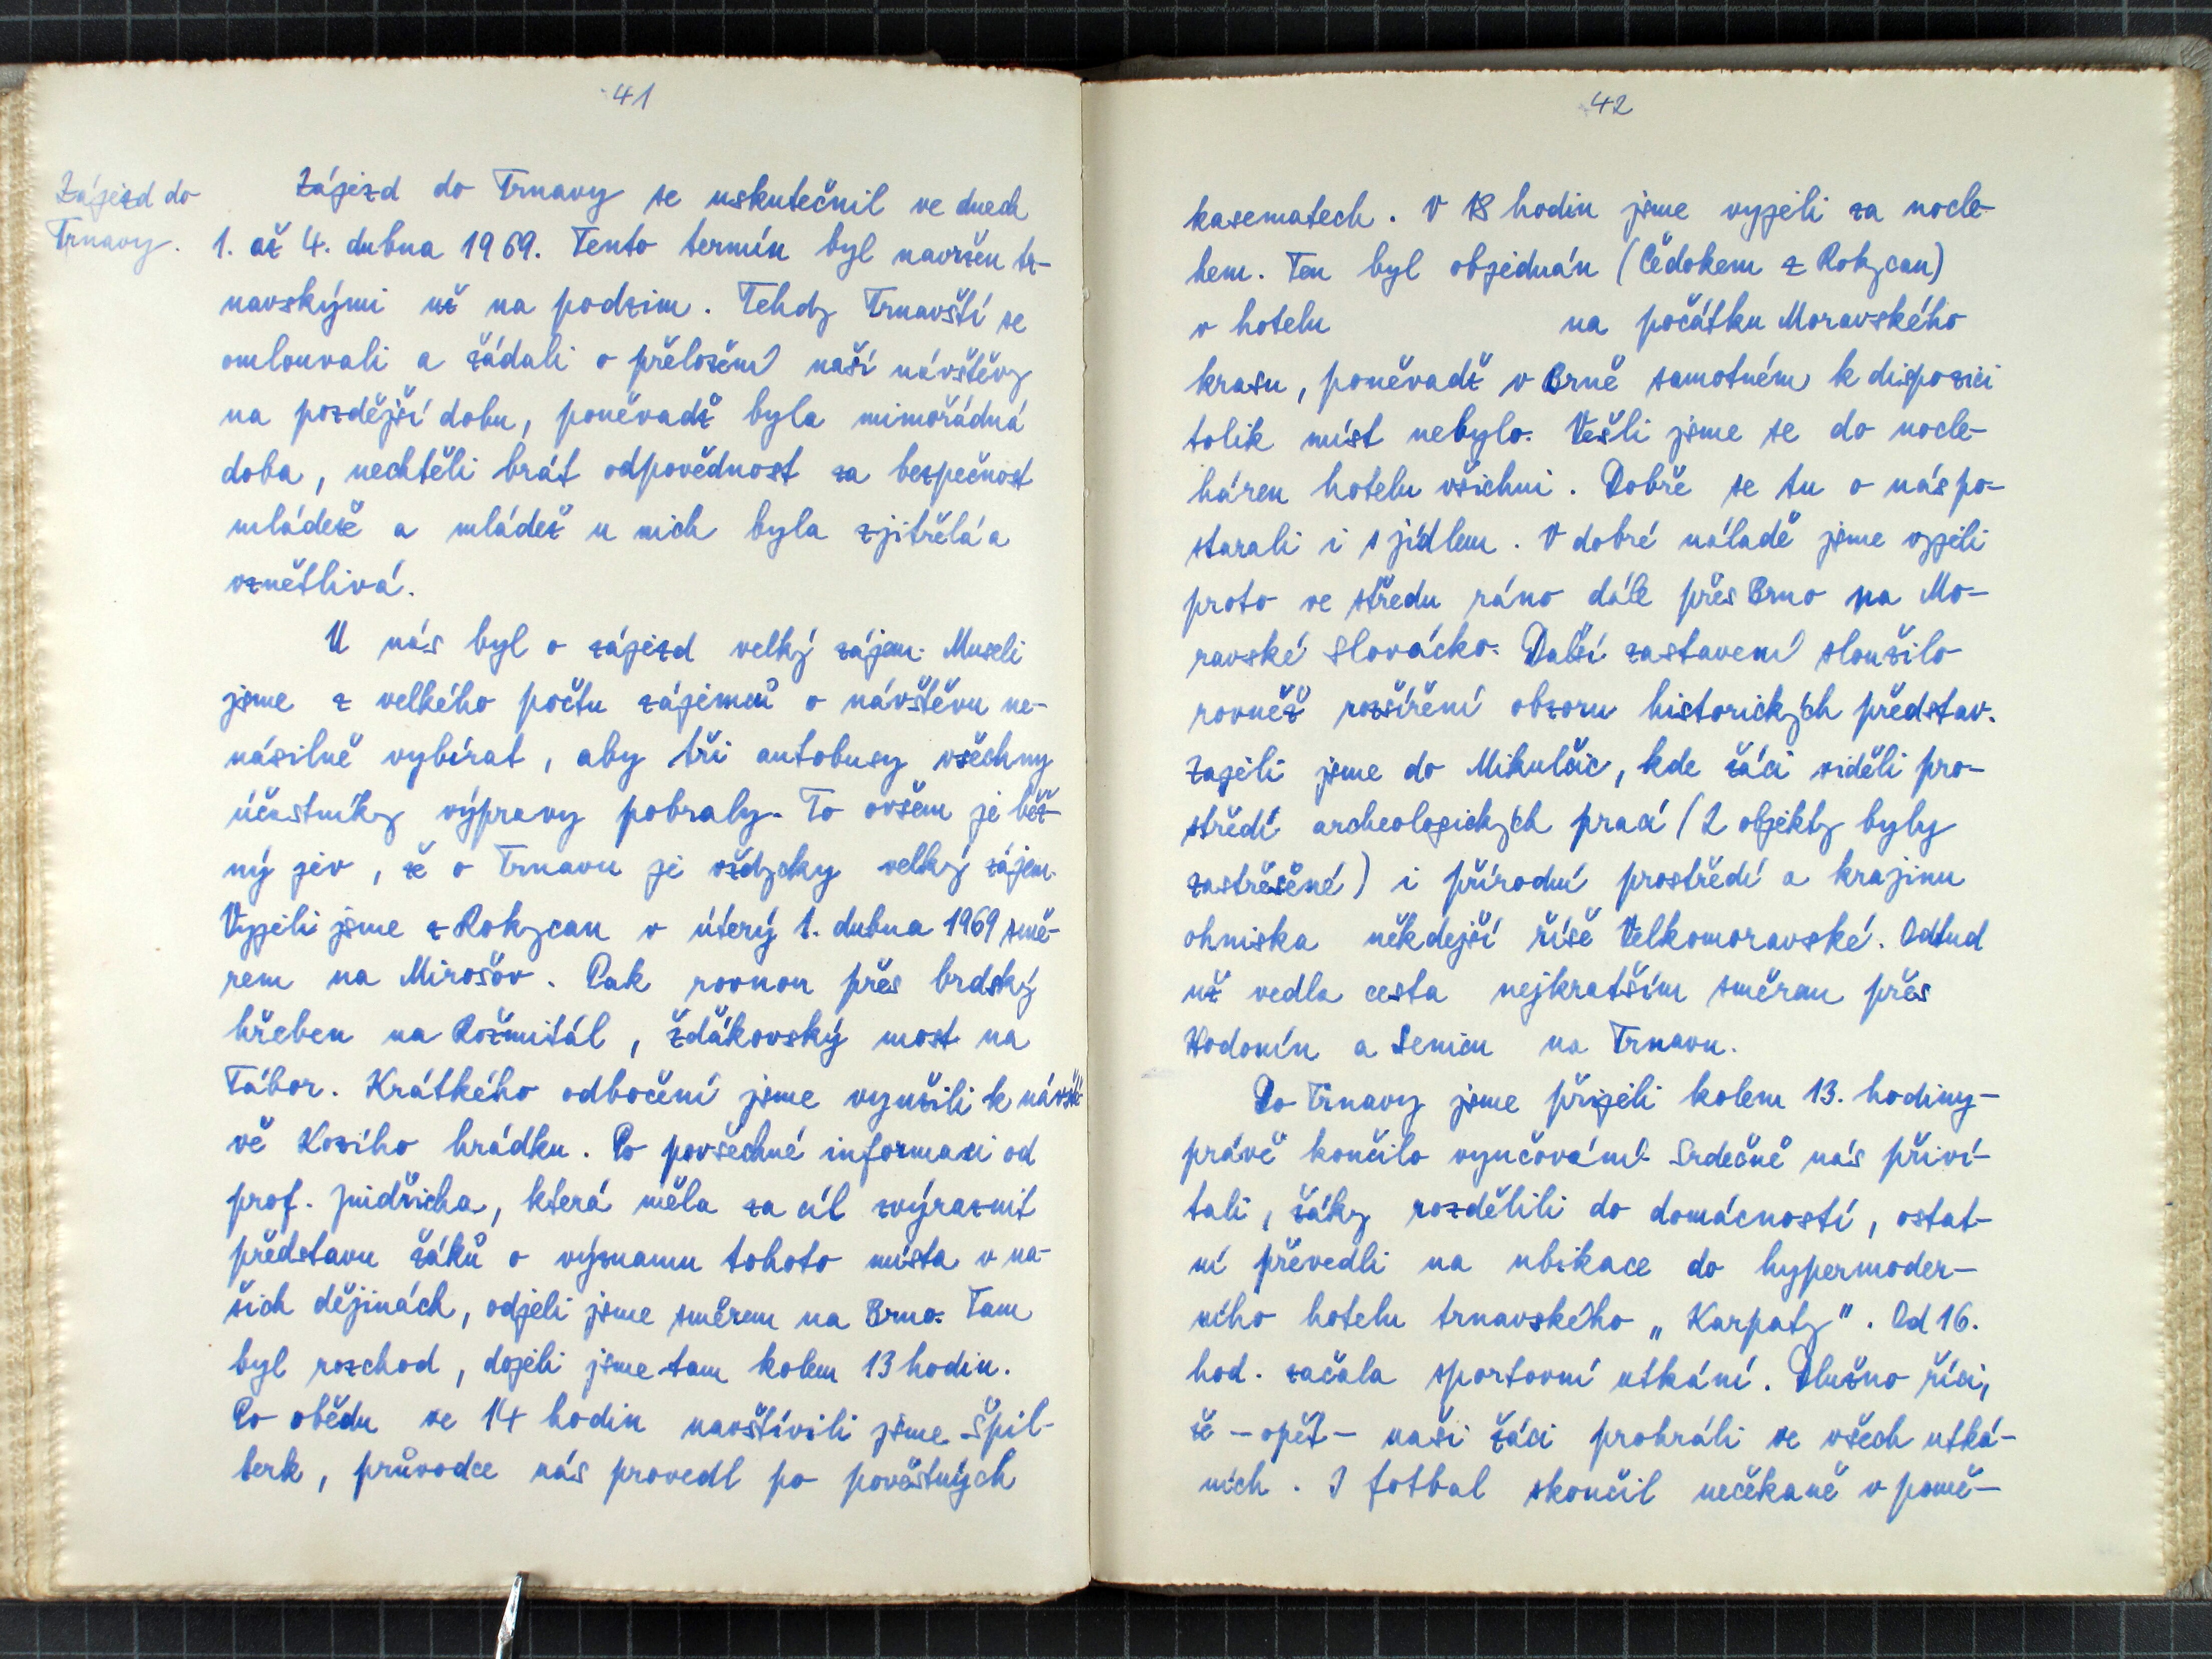 41
Zájezd do
Trnavy.
Zájezd do Trnavy se uskutečnil ve dnech
1. až 4. dubna 1969. Tento termín byl navržen tr-
navskými už na podzim. Tehdy Trnavští se
omlouvali a žádali o přeložení naší návštěvy
na pozdější dobu, poněvadž byla mimořádná
doba, nechtěli brát odpovědnost za bezpečnost
mládeže a mládež u nich byla zjitřelá a
vznětlivá.
U nás byl o zájezd velký zájem. Museli
jsme z velkého počtu zájemců o návštěvu ne-
násilně vybírat, aby tři autobusy všechny
účastníky výpravy pobraly. To ovšem je běž-
ný jev, že o Trnavu je vždycky velký zájem.
Vyjeli jsme z Rokycan v úterý 1. dubna 1969 smě-
rem na Mirošov. Pak rovnou přes brdský
hřeben na Rožmitál, Žďákovský most na
Tábor. Krátkého odbočení jsme využili k návště-
vě Kozího hrádku. Po povšechné informaci od
prof. Jindřicha, která měla za cíl zvýraznit
představu žáků o významu tohoto místa v na-
šich dějinách, odjeli jsme směrem na Brno. Tam
byl rozchod, dojeli jsme tam kolem 13 hodin.
Po obědu ve 14 hodin navštívili jsme Špil-
berk, průvodce nás provedl po pověstných
42
kasematech. V 18 hodin jsme vyjeli za nocle-
hem. Ten byl objednán (Čedokem z Rokycan)
v hotelu na počátku Moravského
krasu, poněvadž v Brně samotném k dispozici
tolik míst nebylo. Vešli jsme se do nocle-
háren hotelu všichni. Dobře se tu o nás po-
starali i s jídlem. V dobré náladě jsme vyjeli
proto ve středu ráno dále přes Brno na Mo-
ravské Slovácko. Další zastavení sloužilo
rovněž rozšíření obzoru historických představ.
Zajeli jsme do Mikulčic, kde žáci viděli pro-
středí archeologických prací (2 objekty byly
zastřešené) i přírodní prostředí a krajinu
ohniska někdejší říše Velkomoravské. Odtud
už vedla cesta nejkratším směrem přes
Hodonín a Senicu na Trnavu.
Do Trnavy jsme přijeli kolem 13. hodiny-
právě končilo vyučování. Srdečně nás přiví-
tali, žáky rozdělili do domácností, ostat-
ní převedli na ubikace do hypermoder-
ního hotelu trnavského „Karpaty". Od 16.
hod. začala sportovní utkání. Dlužno říci,
že - opět - naši žáci prohráli ve všech utká-
ních. I fotbal skončil nečekaně v pomě-